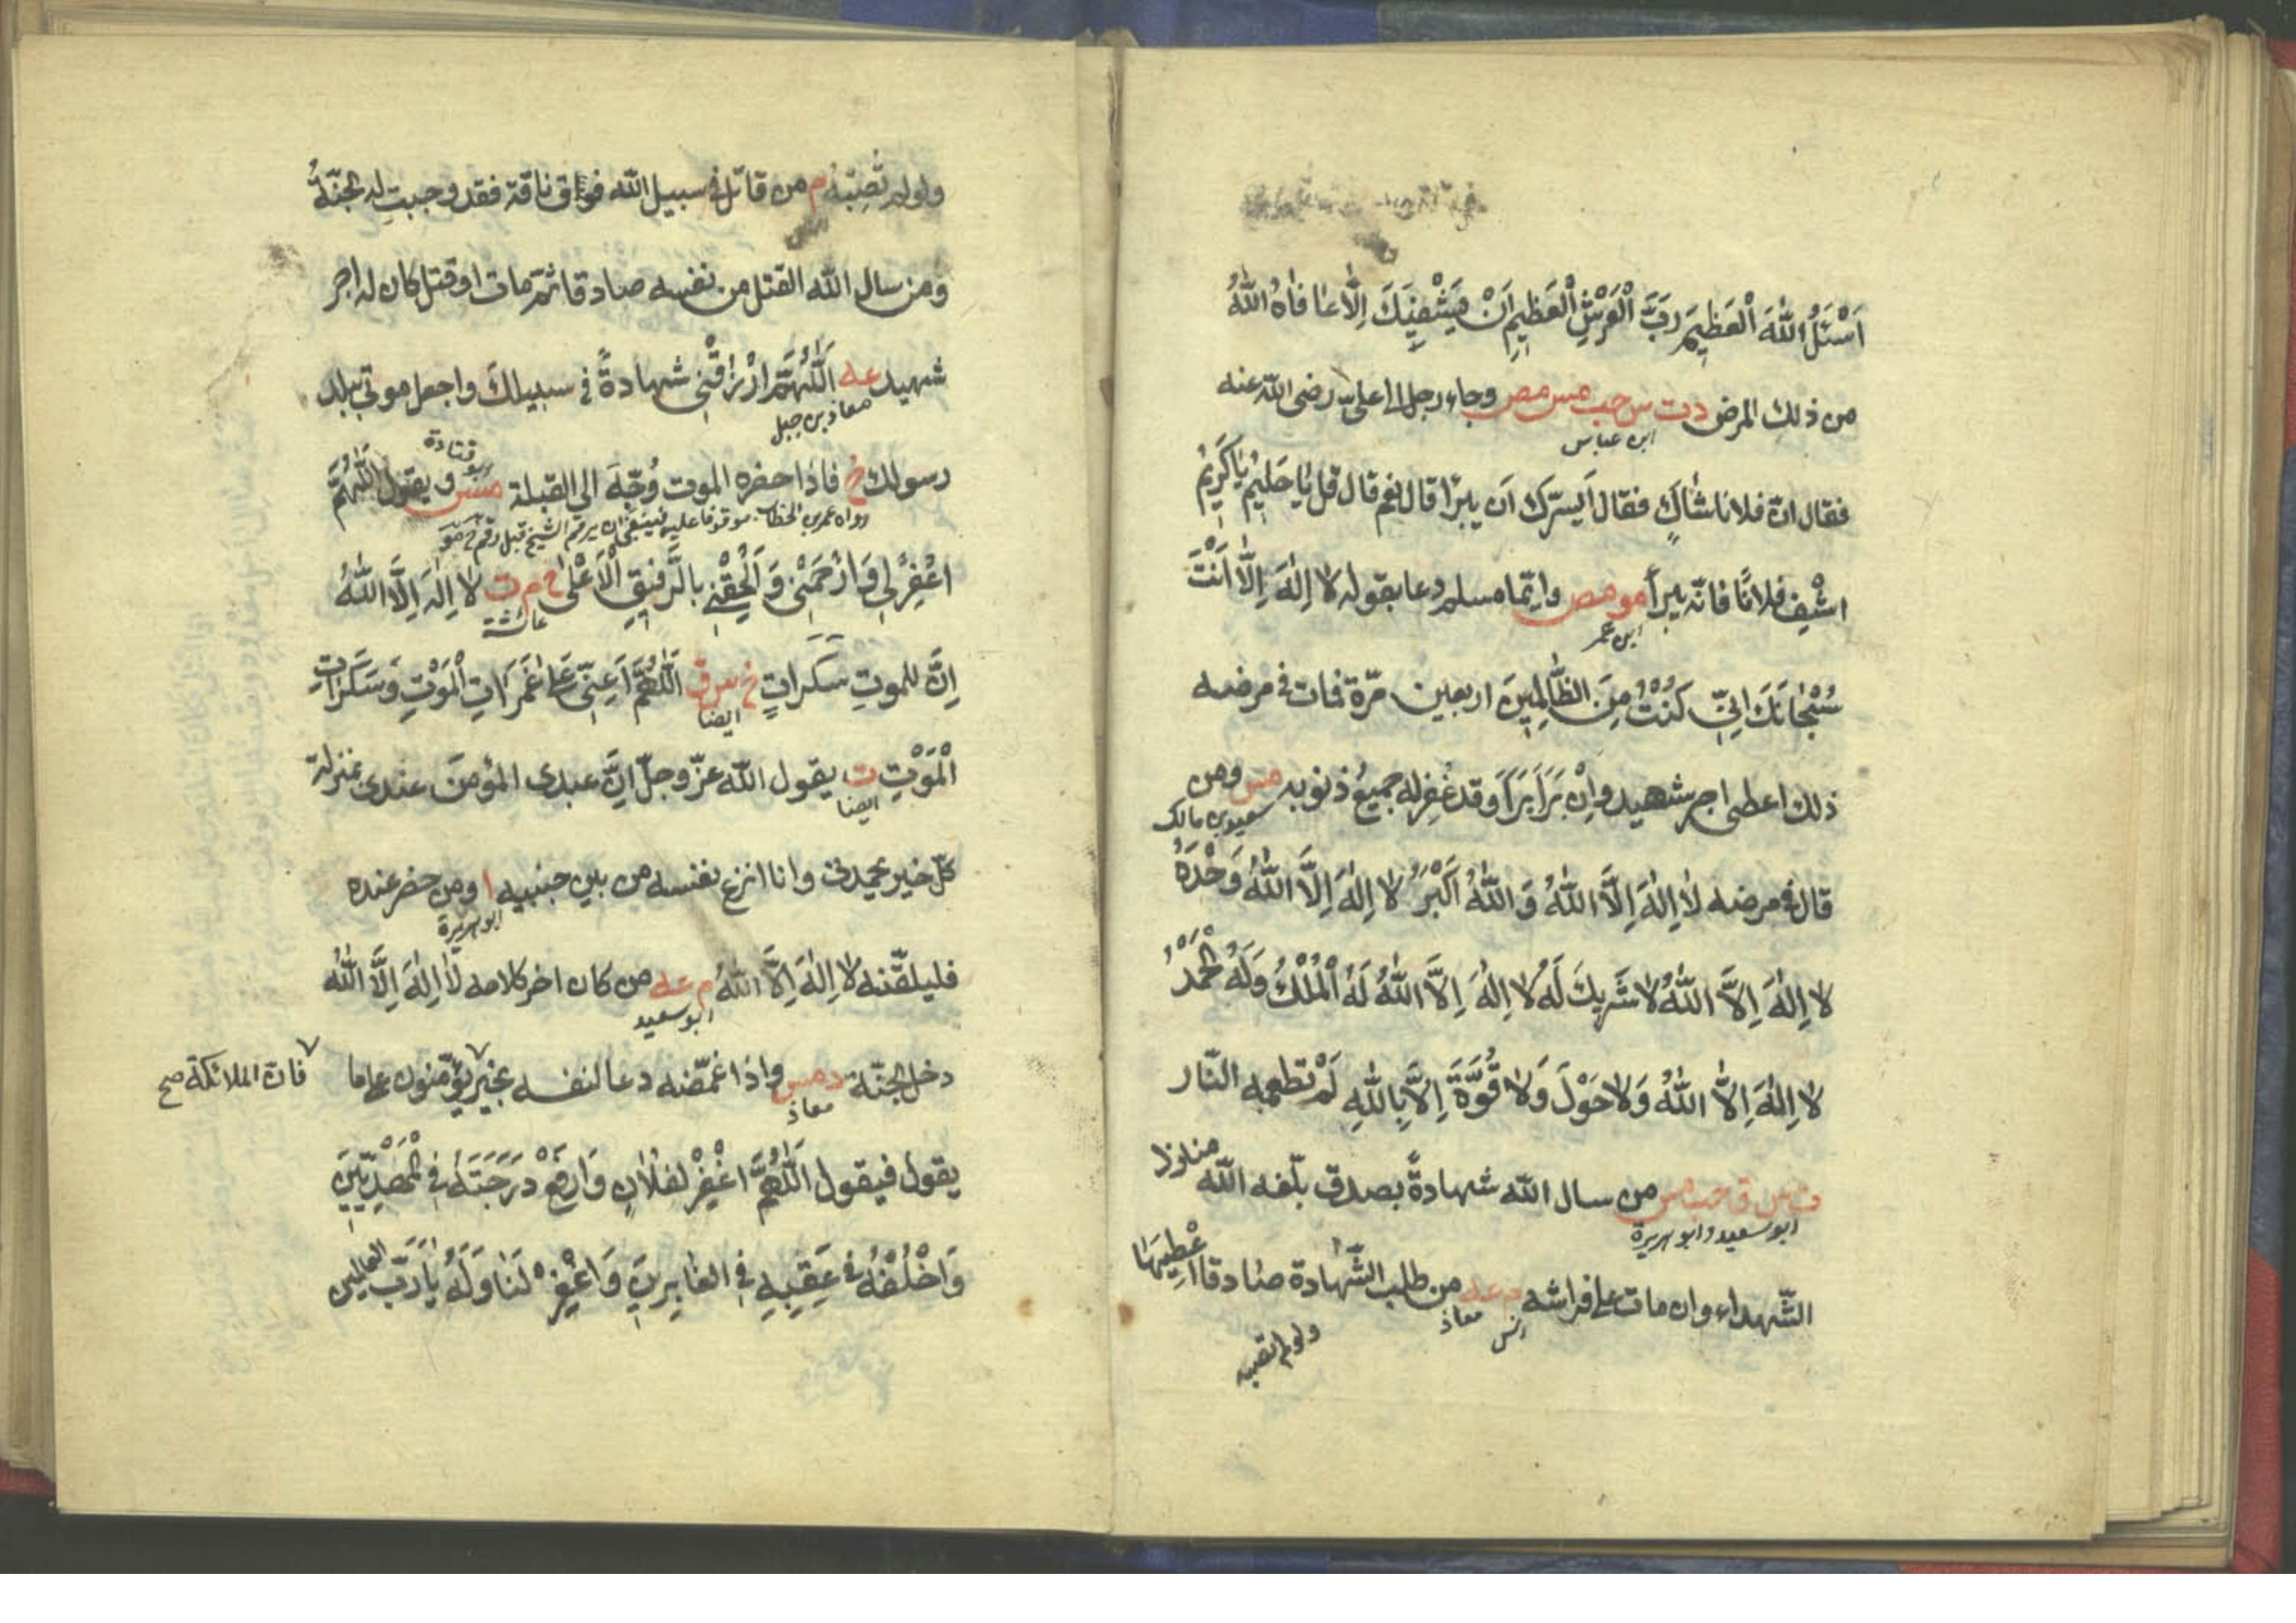 اَسْئَلُ اللّٰهَ الْعَظِيمَ رَبَّ الْعَرْشِ الْعَظِيمِ اَنْ يَشْفِيَكَ اِلَّا عَافَاهُ اللّٰهُ
من ذلك المرض د ت س حب مس مص وجاء رجل الى علي رضى اللّه عنه
ابن عباس
فقال انّ فلانا شاكٍ فقال اَيسرّك اَن يبرَا قال نعم قال قل يَا حَلِيمُ يَا كَرِيمُ
اشْفِ فلانًا فانّه يبرأ مو مص وايّما مسلم دعا بقوله لا اِلٰهَ اِلَّا اَنْتَ
ابن عمر
سُبْحَانَكَ اِنِّي كُنْتُ مِنَ الظَّالِمِينَ اربعين مرّة فمات في مرضه
ذلك اعطى اجر شهيد وَاِنْ بَرَاَ بَرَاَ وقد غُفِر له جميعُ ذنوبه مس ومن
سعيد بن مالك
قال في مرضه لَا اِلٰهَ اِلَّا اللّٰهُ وَاللّٰهُ اَكْبَرُ لا اِلٰهَ اِلَّا اللّٰهُ وَحْدَهُ
لا اِلٰهَ اِلَّا اللّٰهُ لا شَرِيكَ لَهُ لا اِلٰهَ اِلَّا اللّٰهُ لَهُ الْمُلْكُ وَلَهُ الْحَمْدُ
لا اِلٰهَ اِلَّا اللّٰهُ وَلَا حَوْلَ وَلَا قُوَّةَ اِلَّا بِاللّٰهِ لَمْ تطعمه النّار
ت س ق حب مس من سال اللّه شهادةً بصدق بلّغه اللّه منازل
ابو سعيد وابو هريرة
الشّهداء وان مات على فراشه م عه من طلب الشّهادة صادقا اُعْطِيَهَا
معاذ
انس
ولو لم تصبه
ولو لم تُصِبْهُ م من قاتل في سبيل اللّه فواق ناقة فقد وجبت له الجنّةُ
ومن سال اللّه القتل من نفسه صادقا ثمّ مات او قتل كان له اجر
شهيد عه اَللّٰهُمَّ ارْزُقْنِي شهادةً في سبيلك واجعل موتي ببلد
معاذ بن جبل
رسولك خ فاذا حضره الموت وُجِّهَ الى القبلة مس ويقول اَللّٰهُمَّ
ابو قتادة
رواه عمر بن الخطاب موقوفا عليه فينبغى ان يرقم الشيخ قبل رقم خ مو
اغْفِرْ لِي وَارْحَمْنِي وَاَلْحِقْنِي بالرَّفِيقِ الْاَعْلَى خ م ت لا اِلٰهَ اِلَّا اللّٰهُ
عائشة
اِنَّ للموتِ سَكَرَاتٍ خ س ق اَللّٰهُمَّ اَعِنِّي عَلَى غَمَرَاتِ الْمَوْتِ وَسَكَرَاتِ
ايضا
الْمَوْتِ ت يقول اللّه عزّ وجلّ اِنَّ عبدى المؤمنَ عندى بمنزلة
ايضا
كلّ خير يحمدنى وانا انزع نفسه من بين جنبيه ا ومن حضر عنده
ابو هريرة
فليلقّنه لا اِلٰهَ اِلَّا اللّٰهُ م عه من كان اخر كلامه لَا اِلٰهَ اِلَّا اللّٰهُ
ابو سعيد
دخل الجنّة د مس واذا غمّضه دعا لنفسه بخير يؤمّنون على ما
فان الملائكة صح
معاذ
يقول فيقول اَللّٰهُمَّ اغْفِرْ لفُلَانٍ وَارْفَعْ دَرَجَتَهُ فِي الْمَهْدِيِّينَ
وَاخْلُفْهُ فِي عَقِبِهِ فِي الغابِرِينَ وَاغْفِرْ لَنَا وَلَهُ يَا رَبَّ العالمين